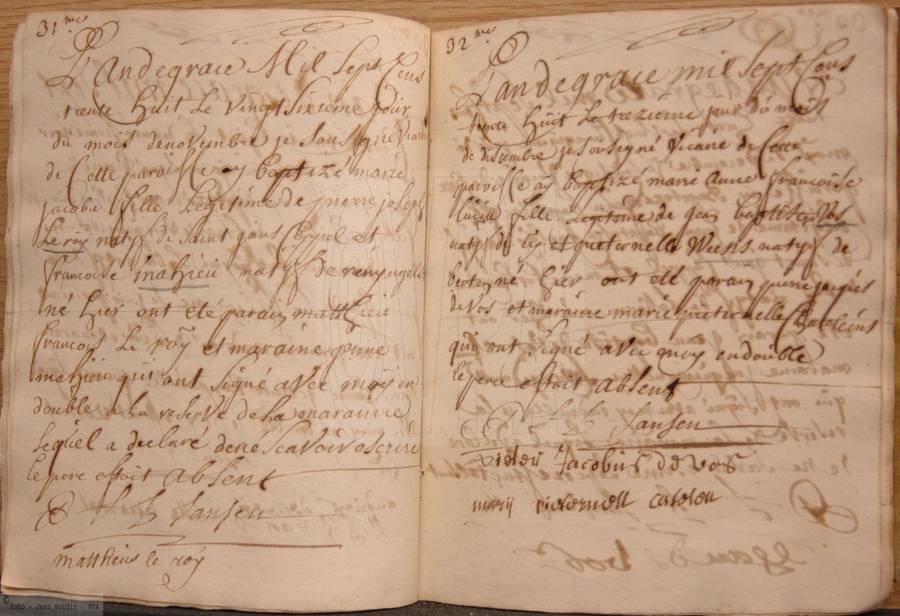 31me
L'an de grace Mil Sept Cens
trente Huit Le vingt sixieme jour
du mois de novembre je Soussigné
de Cette paroisse ay baptizé marie
jacobe fille Legitime de pierre joseph
Le roy natyf de saint jans Cappel et
francoise mahieu natyf de renyngels
né hier ont été parain matthieu
francois Le roÿ et maraine
mahieu qui ont signé avec moÿ en
double a la reserve de la maraine
lequel a declare de ne scavoir escrire
le pere estoit absent
Jansen
mattheus le roÿ
32me
L'an de grace mil Sept Cens
trente huit le trezieme jour du mois
de disembre je sousigné vicaire de Cette
paroisse ay baptizé marie Anne francoise
fille legitime de jean baptiste Vos
natyf de et pieternelle natyf de
né hier ont été parain jacques
de Vos et maraine marie pieternelle
qui ont signé avec moy en double
le pere estoit absent
Jansen
Jacobus de vos
marij
foto - Jean Bordin - VVA